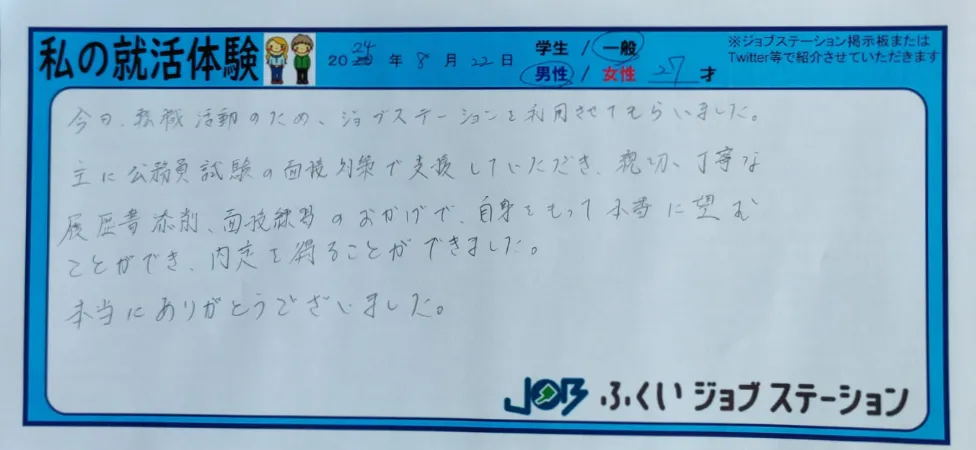 私の就活体験
2024年 8月 22日
学生 / 一般
男性 / 女性 27才
※ジョブステーション掲示板または
Twitter等で紹介させていただきます
今回、転職活動のため、ジョブステーションを利用させてもらいました。
主に公務員試験の面接対策で支援していただき、親切、丁寧な
履歴書添削、面接練習のおかげで、自身をもって本番に望む
ことができ、内定を得ることができました。
本当にありがとうございました。
JOB ふくいジョブステーション